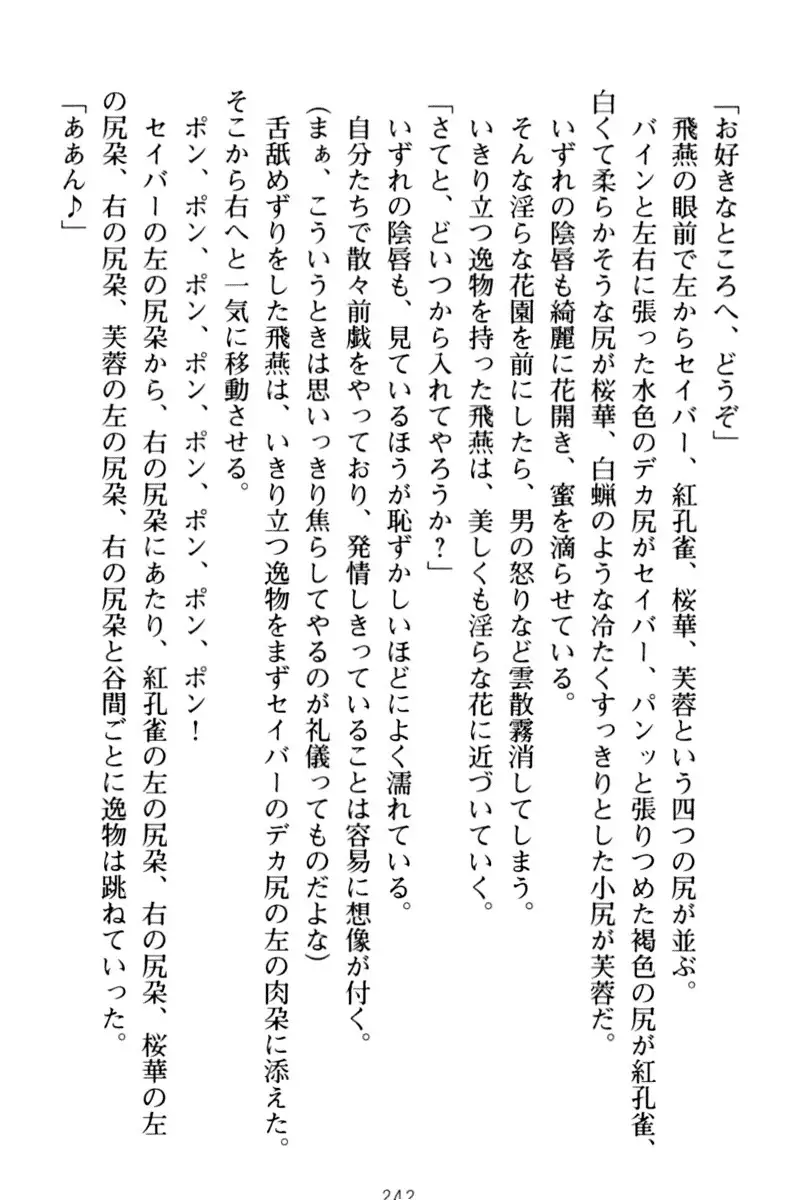 「お好きなところへ、どうぞ」
飛燕の眼前で左からセイバー、紅孔雀、桜華、芙蓉という四つの尻が並ぶ。
バインと左右に張った水色のデカ尻がセイバー、パンッと張りつめた褐色の尻が紅孔雀、
白くて柔らかそうな尻が桜華、白蝋のような冷たくすっきりとした小尻が芙蓉だ。
いずれの陰唇も綺麗に花開き、蜜を滴らせている。
そんな淫らな花園を前にしたら、男の怒りなど雲散霧消してしまう。
いきり立つ逸物を持った飛燕は、美しくも淫らな花に近づいていく。
「さてと、どいつから入れてやろうか？」
いずれの陰唇も、見ているほうが恥ずかしいほどによく濡れている。
自分たちで散々前戯をやっており、発情しきっていることは容易に想像が付く。
(まぁ、こういうときは思いっきり焦らしてやるのが礼儀ってものだよな)
舌舐めずりをした飛燕は、いきり立つ逸物をまずセイバーのデカ尻の左の肉朶に添えた。
そこから右へと一気に移動させる。
ポン、ポン、ポン、ポン、ポン、ポン、ポン、ポン！
セイバーの左の尻朶から、右の尻朶にあたり、紅孔雀の左の尻朶、右の尻朶、桜華の左
の尻朶、右の尻朶、芙蓉の左の尻朶、右の尻朶と谷間ごとに逸物は跳ねていった。
「ああん♪」
242